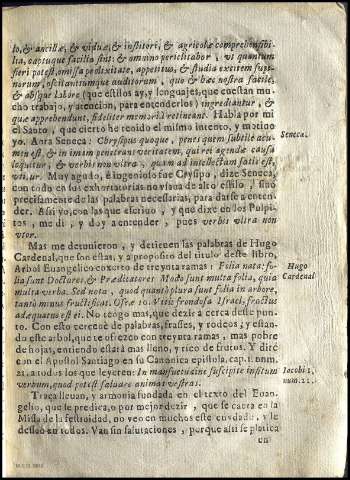 lo, & ancillæ, & viduæ, & institori, & agricolæ comprehensibi-
lia, captuque facilia sint: & omnino periclitabor, vt quantum
fieri potest, omissa prolixitate, appetitus, & studia excitem supi-
norum, oscitantiumque auditorum, quo & hæc nostra facile,
& absque labore (que estilos ay, y lenguajes, que cuestan mu-
cho trabajo, y atencion, para entenderlos) ingrediantur, &
quæ apprehendunt, fideliter memoria retineant. Habla por mi
el Santo, que cierto he tenido el mismo intento, y motiuo
yo. Aora Seneca: Chrysipus quoque, penes quem subtile acu-
men est, & in imam penetrans veritatem, qui rei agendæ causa
loquitur, & verbis non vltra, quam ad intellectum satis est,
vtitur. Muy agudo, è ingenioso fue Crysipo, dize Seneca,
con todo en sus exhortatorias no vsaua de alto estilo, sino
precisamente de las palabras necesarias, para darse a enten-
der. Assi yo, con las que escriuo, y que dixe en los Pulpi-
tos, me di, y doy a entender, pues verbis vltra non
vtor.
Seneca.
Mas me detuuieron, y detienen las palabras de Hugo
Cardenal, que son estas, y a proposito del titulo deste libro,
Arbol Euangelico enxerto de treynta ramas: Folia nota: fo-
lia sunt Doctores, & Prædicatores Modo sunt multa folia, quia
multa verba. Sed nota, quod quantò plura sunt folia in arbore,
tantò minus fructificat. Oseæ 10. Vitis frondosa Israel, fructus
adæquatus est ei. No tengo mas, que dezir a cerca deste pun-
to. Con esto cercenè de palabras, frasses, y rodeos; y essan-
do este arbol, que te ofrezco con treynta ramas, mas pobre
de hojas, entiendo estarà mas lleno, y rico de frutos. Y dirè
con el Apostol Santiago en su Canonica epistola, cap. 1. num.
21. a todos los que leyeren: In mansuetudine suscipite insitum
verbum, quod potest saluare animas vestras.
Hugo
Cardenal
Iacobi 1.
num. 21.
Traça lleuan, y armonia fundada en el texto del Euan-
gelio, que se predica, o por mejor dezir, que se canta en la
Missa de la festiuidad, no veo en muchos este cuydado, y le
desseo en todos. Van sin salutaciones, porque assi se platica
en